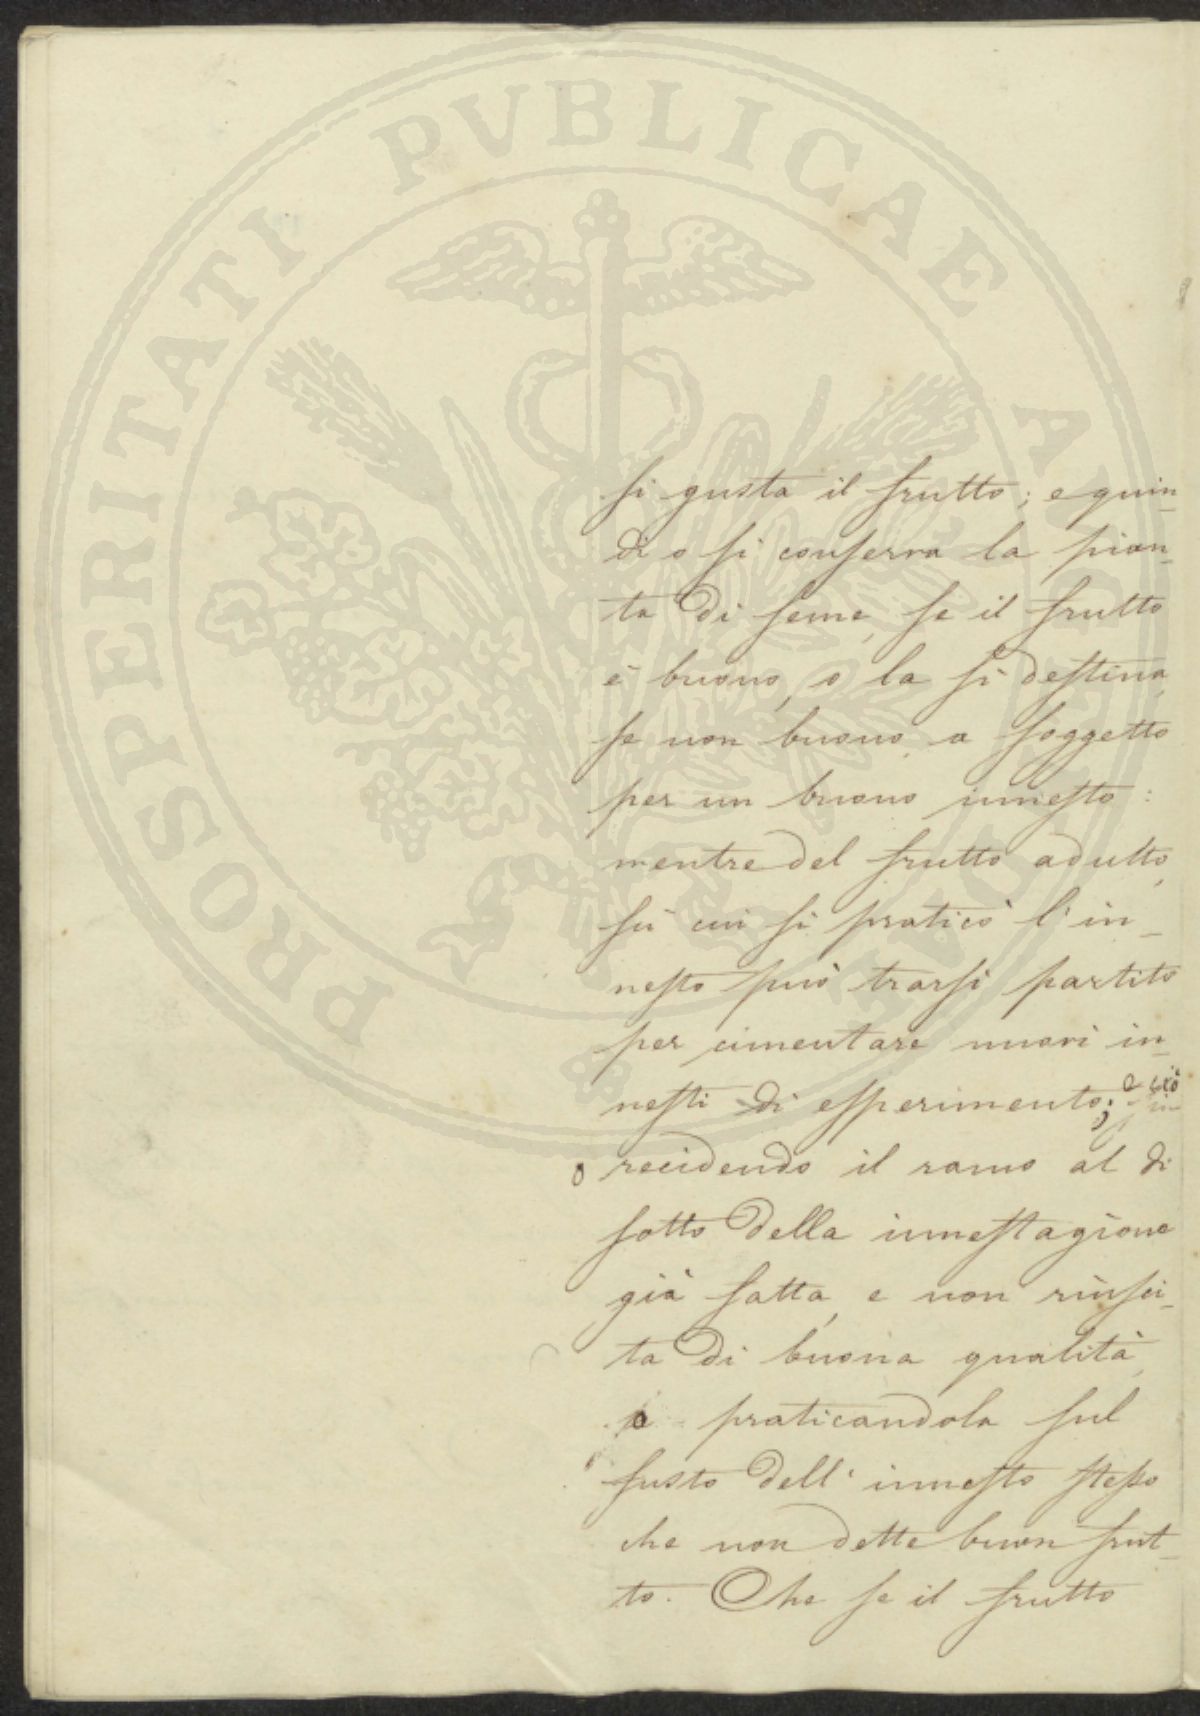 PROSPERITATI PVBLICAE AVGENDAE
si gusta il frutto; e quin-
di o si conserva la pian-
ta di seme, se il frutto
è buono, o la si destina,
se non buono, a soggetto
per un buono innesto:
mentre del frutto adulto,
su cui si praticò l'in-
nesto può trarsi partito
per cimentare nuovi in-
nesti di esperimento; e ciò
o recidendo il ramo al di
sotto della innestagione
già fatta, e non riusci-
ta di buona qualità,
o praticandola sul
fusto dell'innesto stesso
che non dette buon frut-
to. Che se il frutto